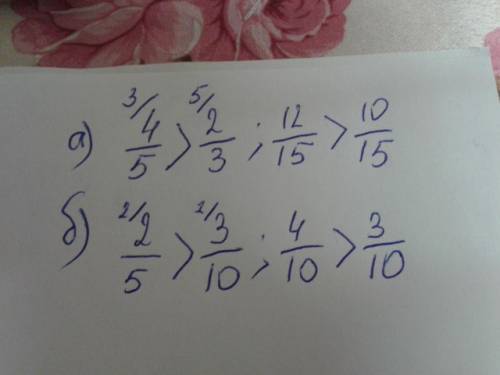 а) ³/4/5 > ⁵/2/3 ; 12/15 > 10/15
б) ²/2/5 > ¹/3/10 ; 4/10 > 3/10